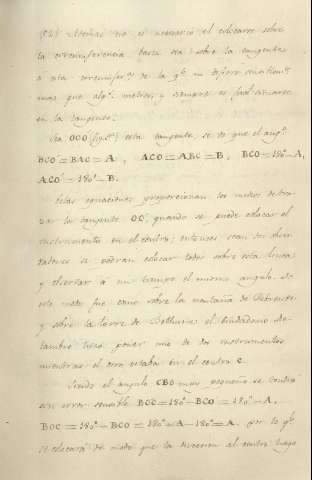 (52) Además no es necesario el colocarse sobre
la circunferencia basta sea sobre la tangente
a esta circunfer.ª de la q.e se difiere
mas que alg.s metros, y siempre es facil situarse
en la tangente.
Sea OCO' esta tangente, se ve que el ang.º
BCO' = BAC = A, ACO = ABC = B, BCO = 180º - A,
ACO' = 180º - B.
Estas equaciones proporcionan los medios de tra-
zar la tangente OO', quando se puede colocar el
instrumento en el centro; entonces
se podran colocar todos sobre esta linea
y observar a un tiempo el mismo angulo. De
este modo fue como sobre la montaña de
y sobre la torre de el ciudadano De-
lambre hizo poner uno de dos instrumentos
mientras el otro estaba en el centro C.
Siendo el angulo CBO muy pequeño se tendra
sin error sensible BOC = 180º - BCO' = 180º - A,
BOC = 180º - BCO = 180º - A - 180º = A. por lo q.e
se colocará de modo que la direccion al centro haga